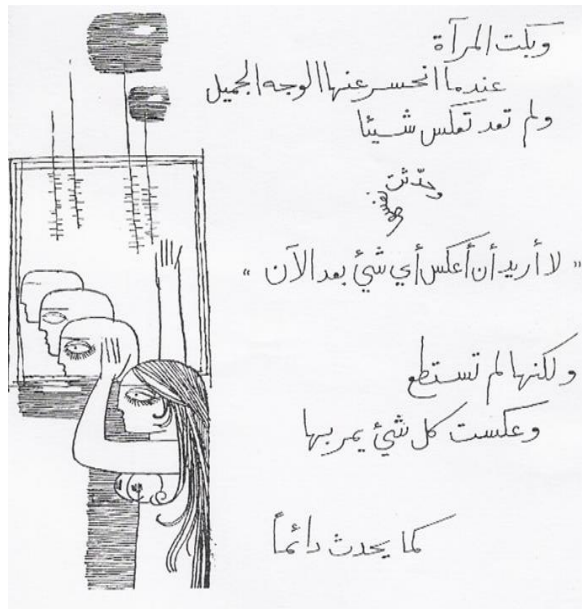 وبكت المرآة
عندما انحسر عنها الوجه الجميل
ولم تعد تعكس شيئا
وحدّثت نفسها
" لا أريد أن أعكس أي شئ بعد الآن "
ولكنها لم تستطع
وعكست كل شئ يمر بها
كما يحدث دائماً